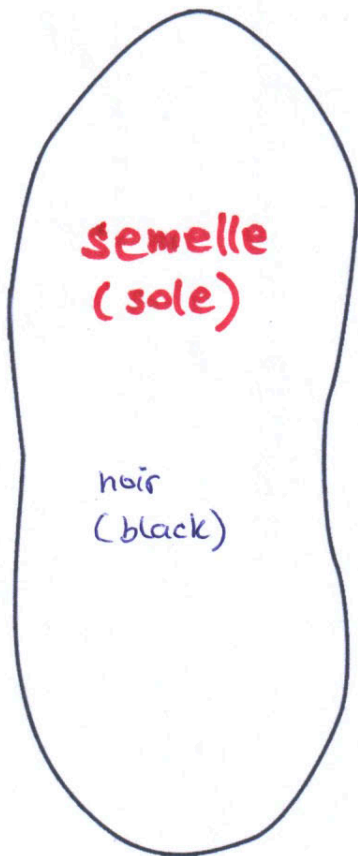 semelle
(sole)
noir
(black)